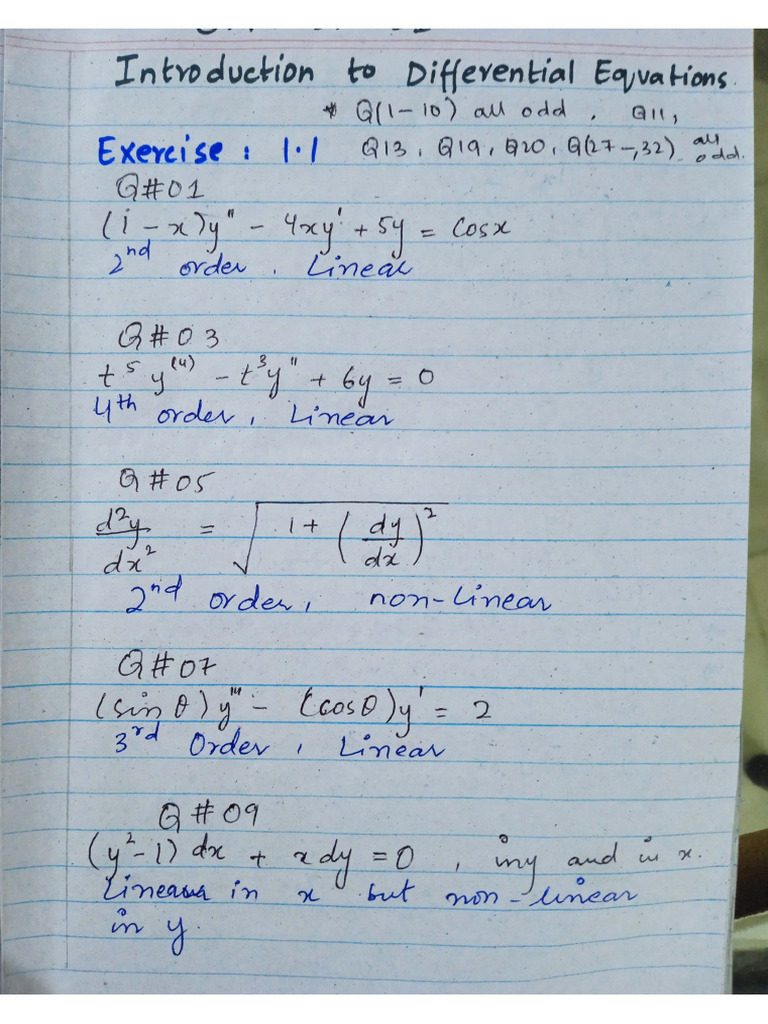 Introduction to Differential Equations.
* Q(1-10) all odd, Q11,
Exercise: 1.1 Q13, Q19, Q20, Q(27-,32) all odd.
Q#01
(1-x)y'' - 4xy' + 5y = Cosx
2nd order. Linear
Q#03
t⁵y⁽⁴⁾ - t³y'' + 6y = 0
4th order, Linear
Q#05
d²y/dx² = √(1+(dy/dx)²)
2nd order, non-Linear
Q#07
(sinθ)y''' - (cosθ)y' = 2
3rd Order, Linear
Q#09
(y²-1)dx + xdy = 0, in y and in x.
Linear in x but non-linear
in y.